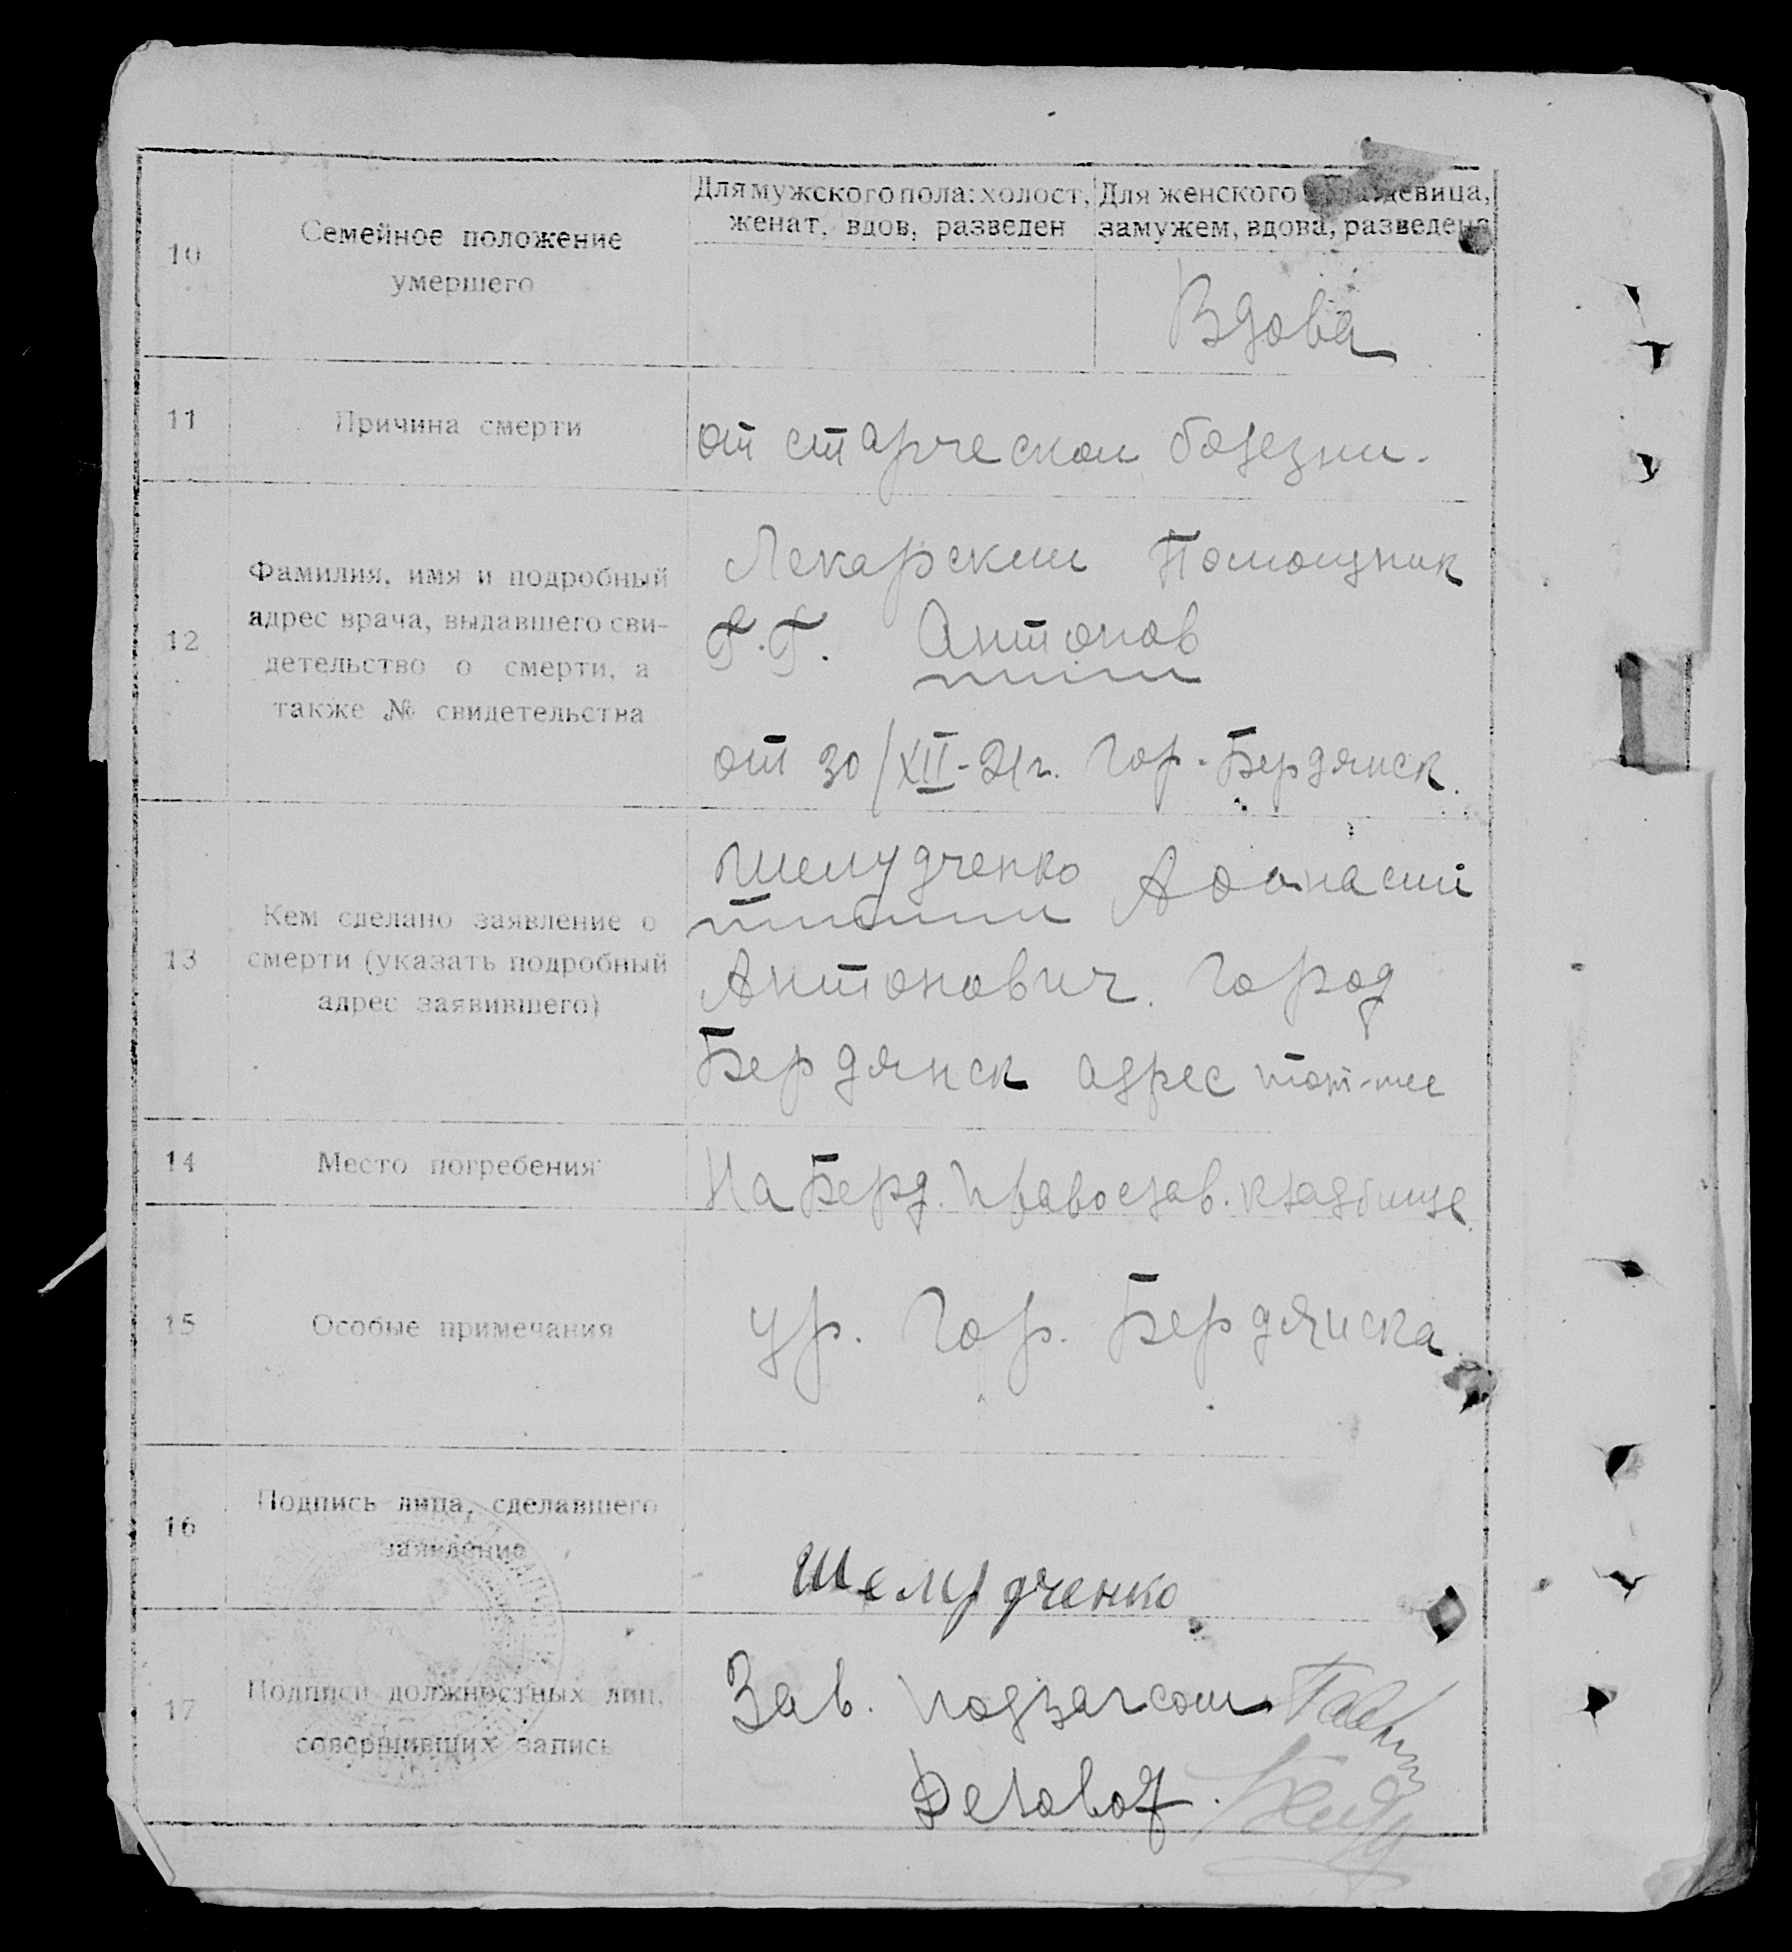 Для мужского пола: холост, женат, вдов, разведен
Для женского девица, замужем, вдова, разведена
10
Семейное положение
умершего
Вдова
11
Причина смерти
от старческои болезни.
12
Фамилия, имя и подробный
адрес врача, выдавшего сви-
детельство о смерти, а
также № свидетельства
Лекарскии Помощник
Г.Г. Антонов
от 30/XII-21г. Гор. Бердянск.
13
Кем сделано заявление о
смерти (указать подробный
адрес заявившего)
Шелудченко Афанасий
Антонович. Город
Бердянск адрес тот-же
14
Место погребения
На Берд. Православ. кладбище.
15
Особые примечания
ур. Гор. Бердянска.
16
Подпись лица, сделавшего
заявление
Шелудченко
17
Подписи должностных лиц,
совершивших запись
Зав. подзагсом
Деловод.